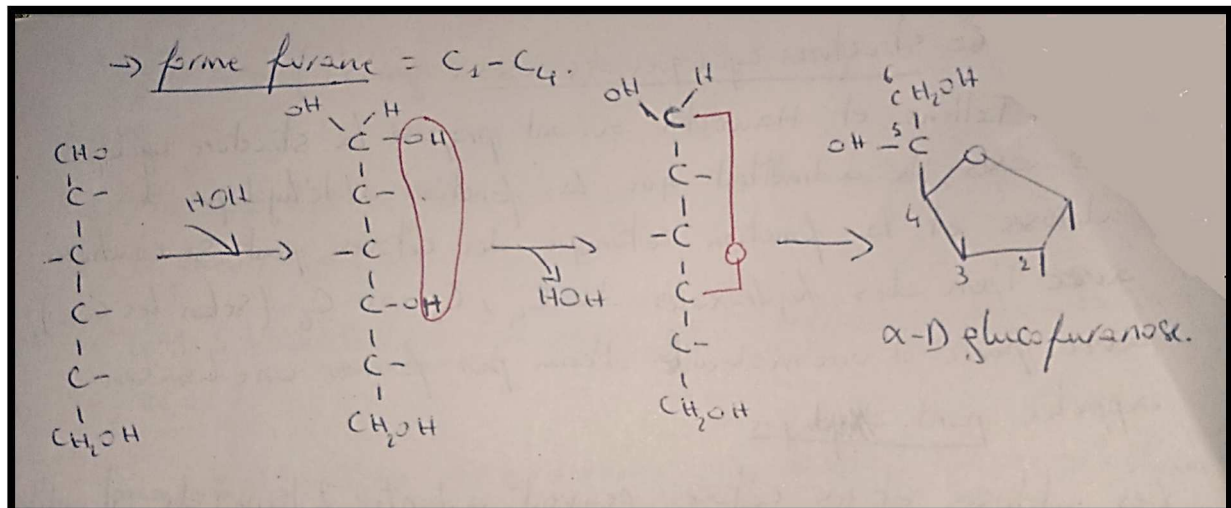 → forme furane = C1-C4.
CHO
C-
-C
C-
C-
CH2OH
HOH
OH H
C-OH
C-
-C
C-OH
C-
CH2OH
HOH
OH H
C
C-
-C
O
C
C-
CH2OH
6
CH2OH
OH-C 5
O
4
3
2
α-D glucofuranose.